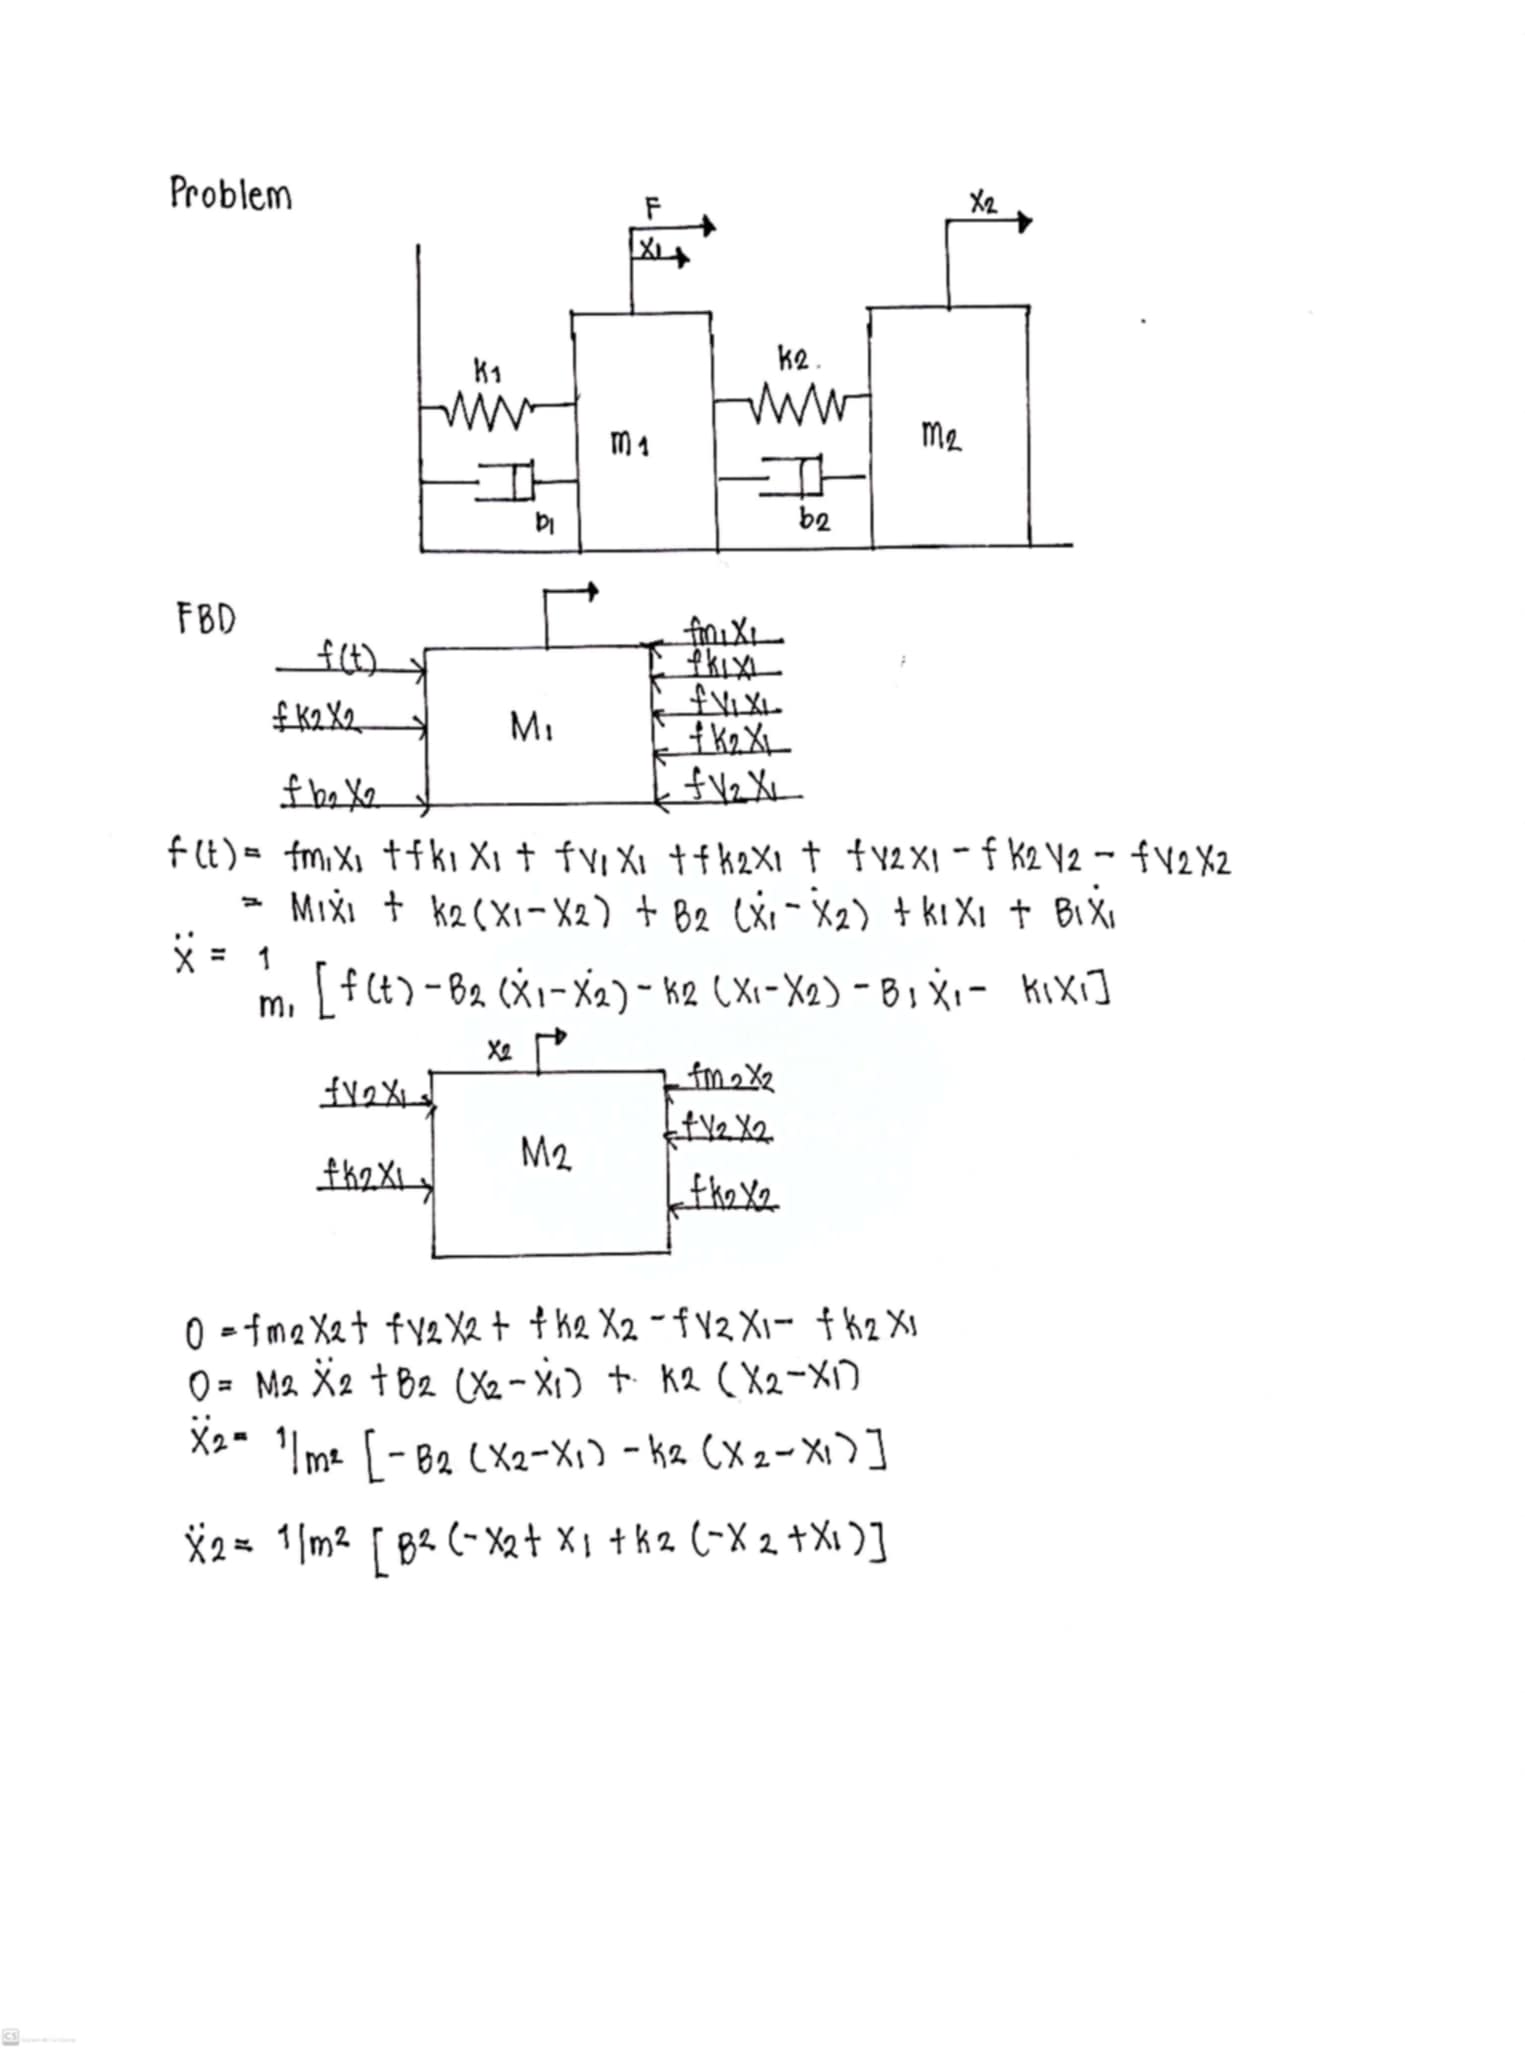 Problem
F
X1
X2
K1
K2.
m1
m2
b1
b2
FBD
f(t)
fm1X1
fk1X1
fK2X2
M1
fV1X1
fk2X1
fb2X2
fV2X1
f(t) = fm1X1 + fk1 X1 + fV1 X1 + fk2X1 + fV2X1 - fK2V2 - fV2X2
= M1ẋ1 + k2(X1-X2) + B2 (ẋ1-ẋ2) + k1X1 + B1Ẋ1
Ẍ = 1
m1 [f(t) - B2 (Ẋ1-Ẋ2) - K2 (X1-X2) - B1 Ẋ1 - K1X1]
X2
fV2X1
fm2X2
M2
fV2X2
fk2X1
fk2X2
0 = fm2X2 + fV2X2 + fk2 X2 - fV2X1 - fk2X1
0 = M2 Ẍ2 + B2 (X2 - Ẋ1) + K2 (X2-X1)
Ẍ2 = 1/m2 [-B2 (X2-X1) - k2 (X2-X1)]
Ẍ2 = 1/m2 [B2 (-X2+ X1 + k2 (-X2+X1)]
CS